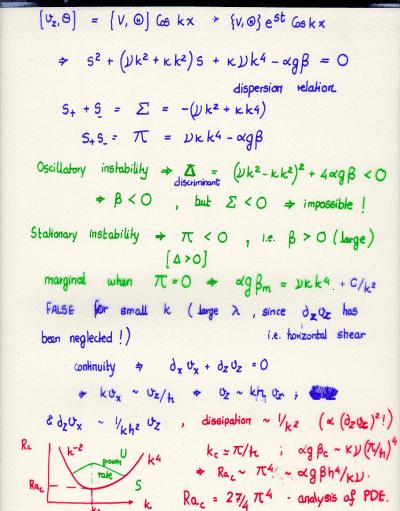 [v_z, Θ] = {V, Θ} cos kx → {V, Θ} e^{st} cos kx
⇒ s² + (νk² + κk²)s + κνk⁴ - αgβ = 0
dispersion relation
s₊ + s₋ = Σ = -(νk² + κk⁴)
s₊s₋ = Π = νκk⁴ - αgβ
Oscillatory instability ⇒ Δ = (νk² - κk²)² + 4αgβ < 0
discriminant
⇒ β < 0 , but Σ < 0 ⇒ impossible !
Stationary instability ⇒ Π < 0 , i.e. β > 0 (large)
[Δ > 0]
marginal when Π = 0 ⇒ αgβₘ = νκk⁴ + C/k²
FALSE for small k (large λ, since ∂ₓv_z has
been neglected !) i.e. horizontal shear
continuity ⇒ ∂ₓvₓ + ∂_z v_z = 0
⇒ kvₓ ~ v_z/h ⇒ v_z ~ khvₓ ;
& ∂_z vₓ ~ 1/kh² v_z , dissipation ~ 1/k² (∝ (∂_z vₓ)² !)
k_c ≃ π/h ; αgβ_c ~ κν(π/h)⁴
⇒ Ra_c ~ π⁴ ~ αgβh⁴/κν
Ra_c = 27/4 π⁴ - analysis of PDE.
Ra
k⁻²
U
growth
rate
k⁴
Ra_c
S
k
k_c